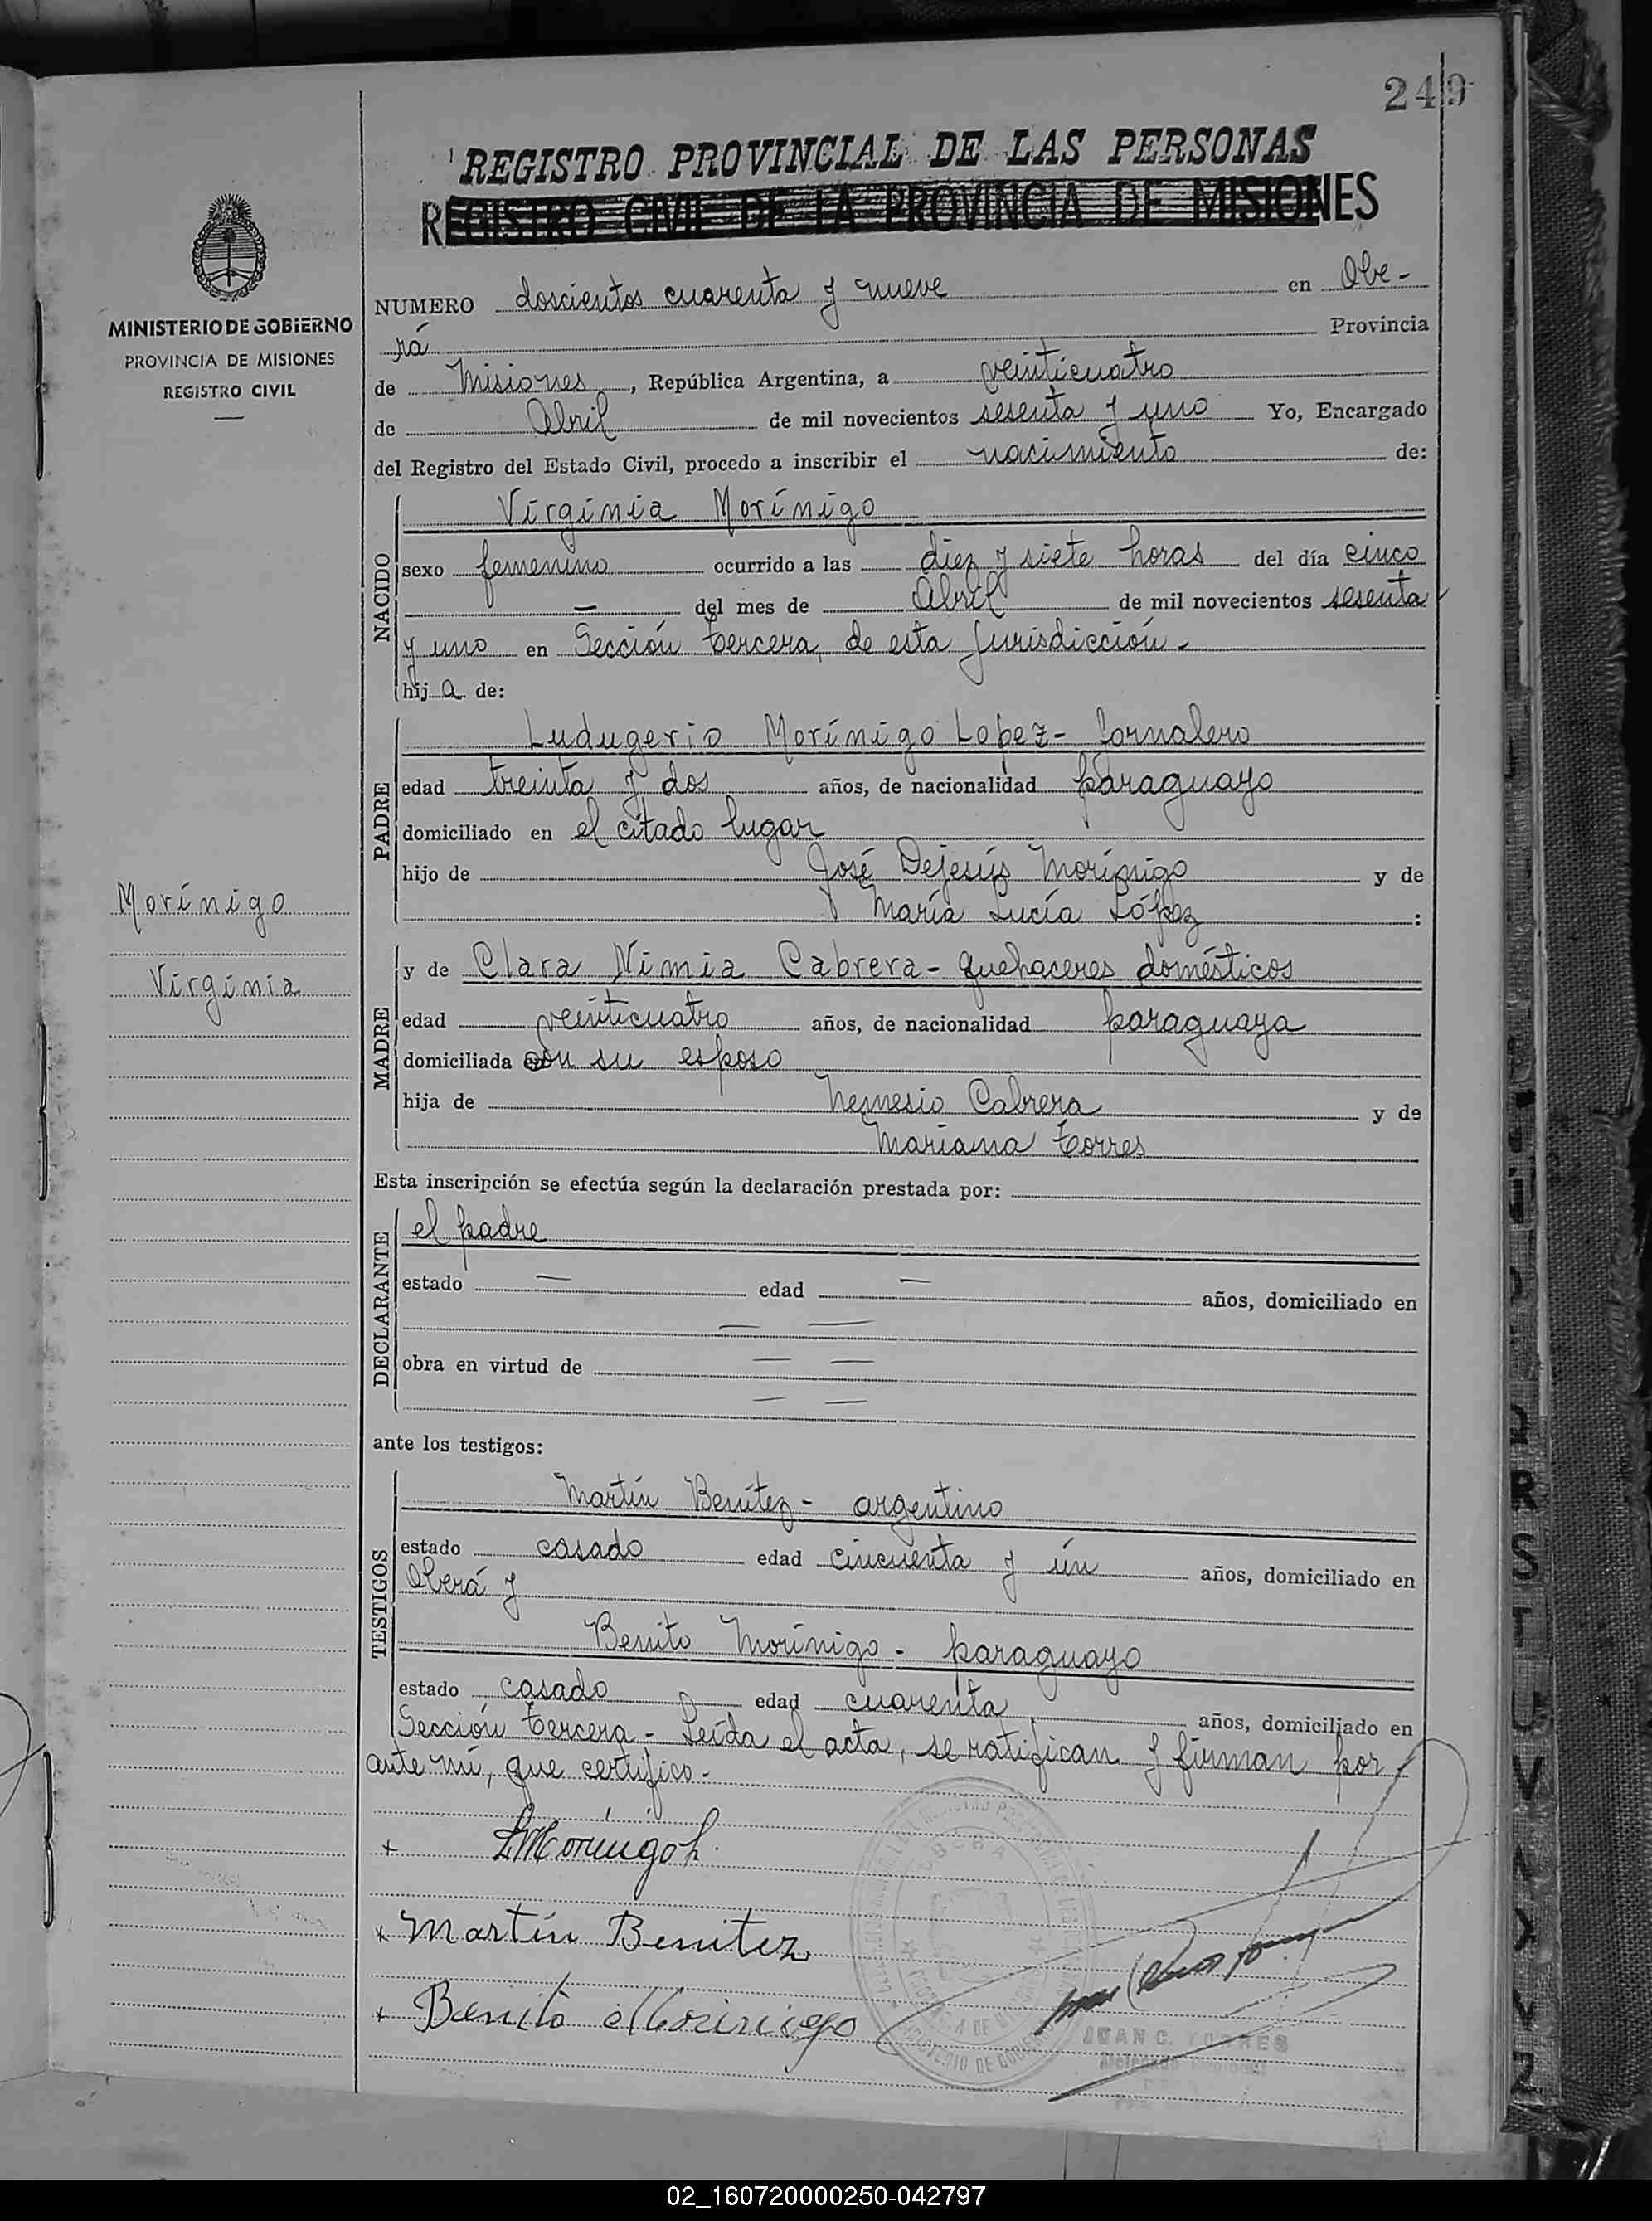 249
REGISTRO PROVINCIAL DE LAS PERSONAS
REGISTRO CIVIL DE LA PROVINCIA DE MISIONES
MINISTERIO DE GOBIERNO
PROVINCIA DE MISIONES
REGISTRO CIVIL
Morínigo
Virginia
NUMERO doscientos cuarenta y nueve en Obe-
rá Provincia
de Misiones, República Argentina, a veinticuatro
de Abril de mil novecientos sesenta y uno Yo, Encargado
del Registro del Estado Civil, procedo a inscribir el nacimiento de:
NACIDO
Virginia Morínigo
sexo femenino ocurrido a las diez y siete horas del día cinco
— del mes de Abril de mil novecientos sesenta
y uno en Sección tercera, de esta Jurisdicción.-
hija de:
PADRE
Ludugerio Morínigo Lopez- Jornalero
edad treinta y dos años, de nacionalidad paraguayo
domiciliado en el citado lugar
hijo de José Dejesús Morínigo y de
María Lucía López :
MADRE
y de Clara Nimia Cabrera- quehaceres domésticos
edad veinticuatro años, de nacionalidad paraguaya
domiciliada con su esposo
hija de Nemesio Cabrera y de
Mariana Torres
Esta inscripción se efectúa según la declaración prestada por:
DECLARANTE
el padre
estado — edad — años, domiciliado en
— —
obra en virtud de — —
— —
ante los testigos:
TESTIGOS
Martín Benítez- argentino
estado casado edad cincuenta y ún años, domiciliado en
Oberá y
Benito Morínigo- paraguayo
estado casado edad cuarenta años, domiciliado en
Sección tercera- Leída el acta, se ratifican y firman por
ante mí, que certifico.-
+ LMorínigo L.
+ Martín Benitez
+ Benito Morinigo
OBERA
JUAN C. TORRES
02_160720000250-042797